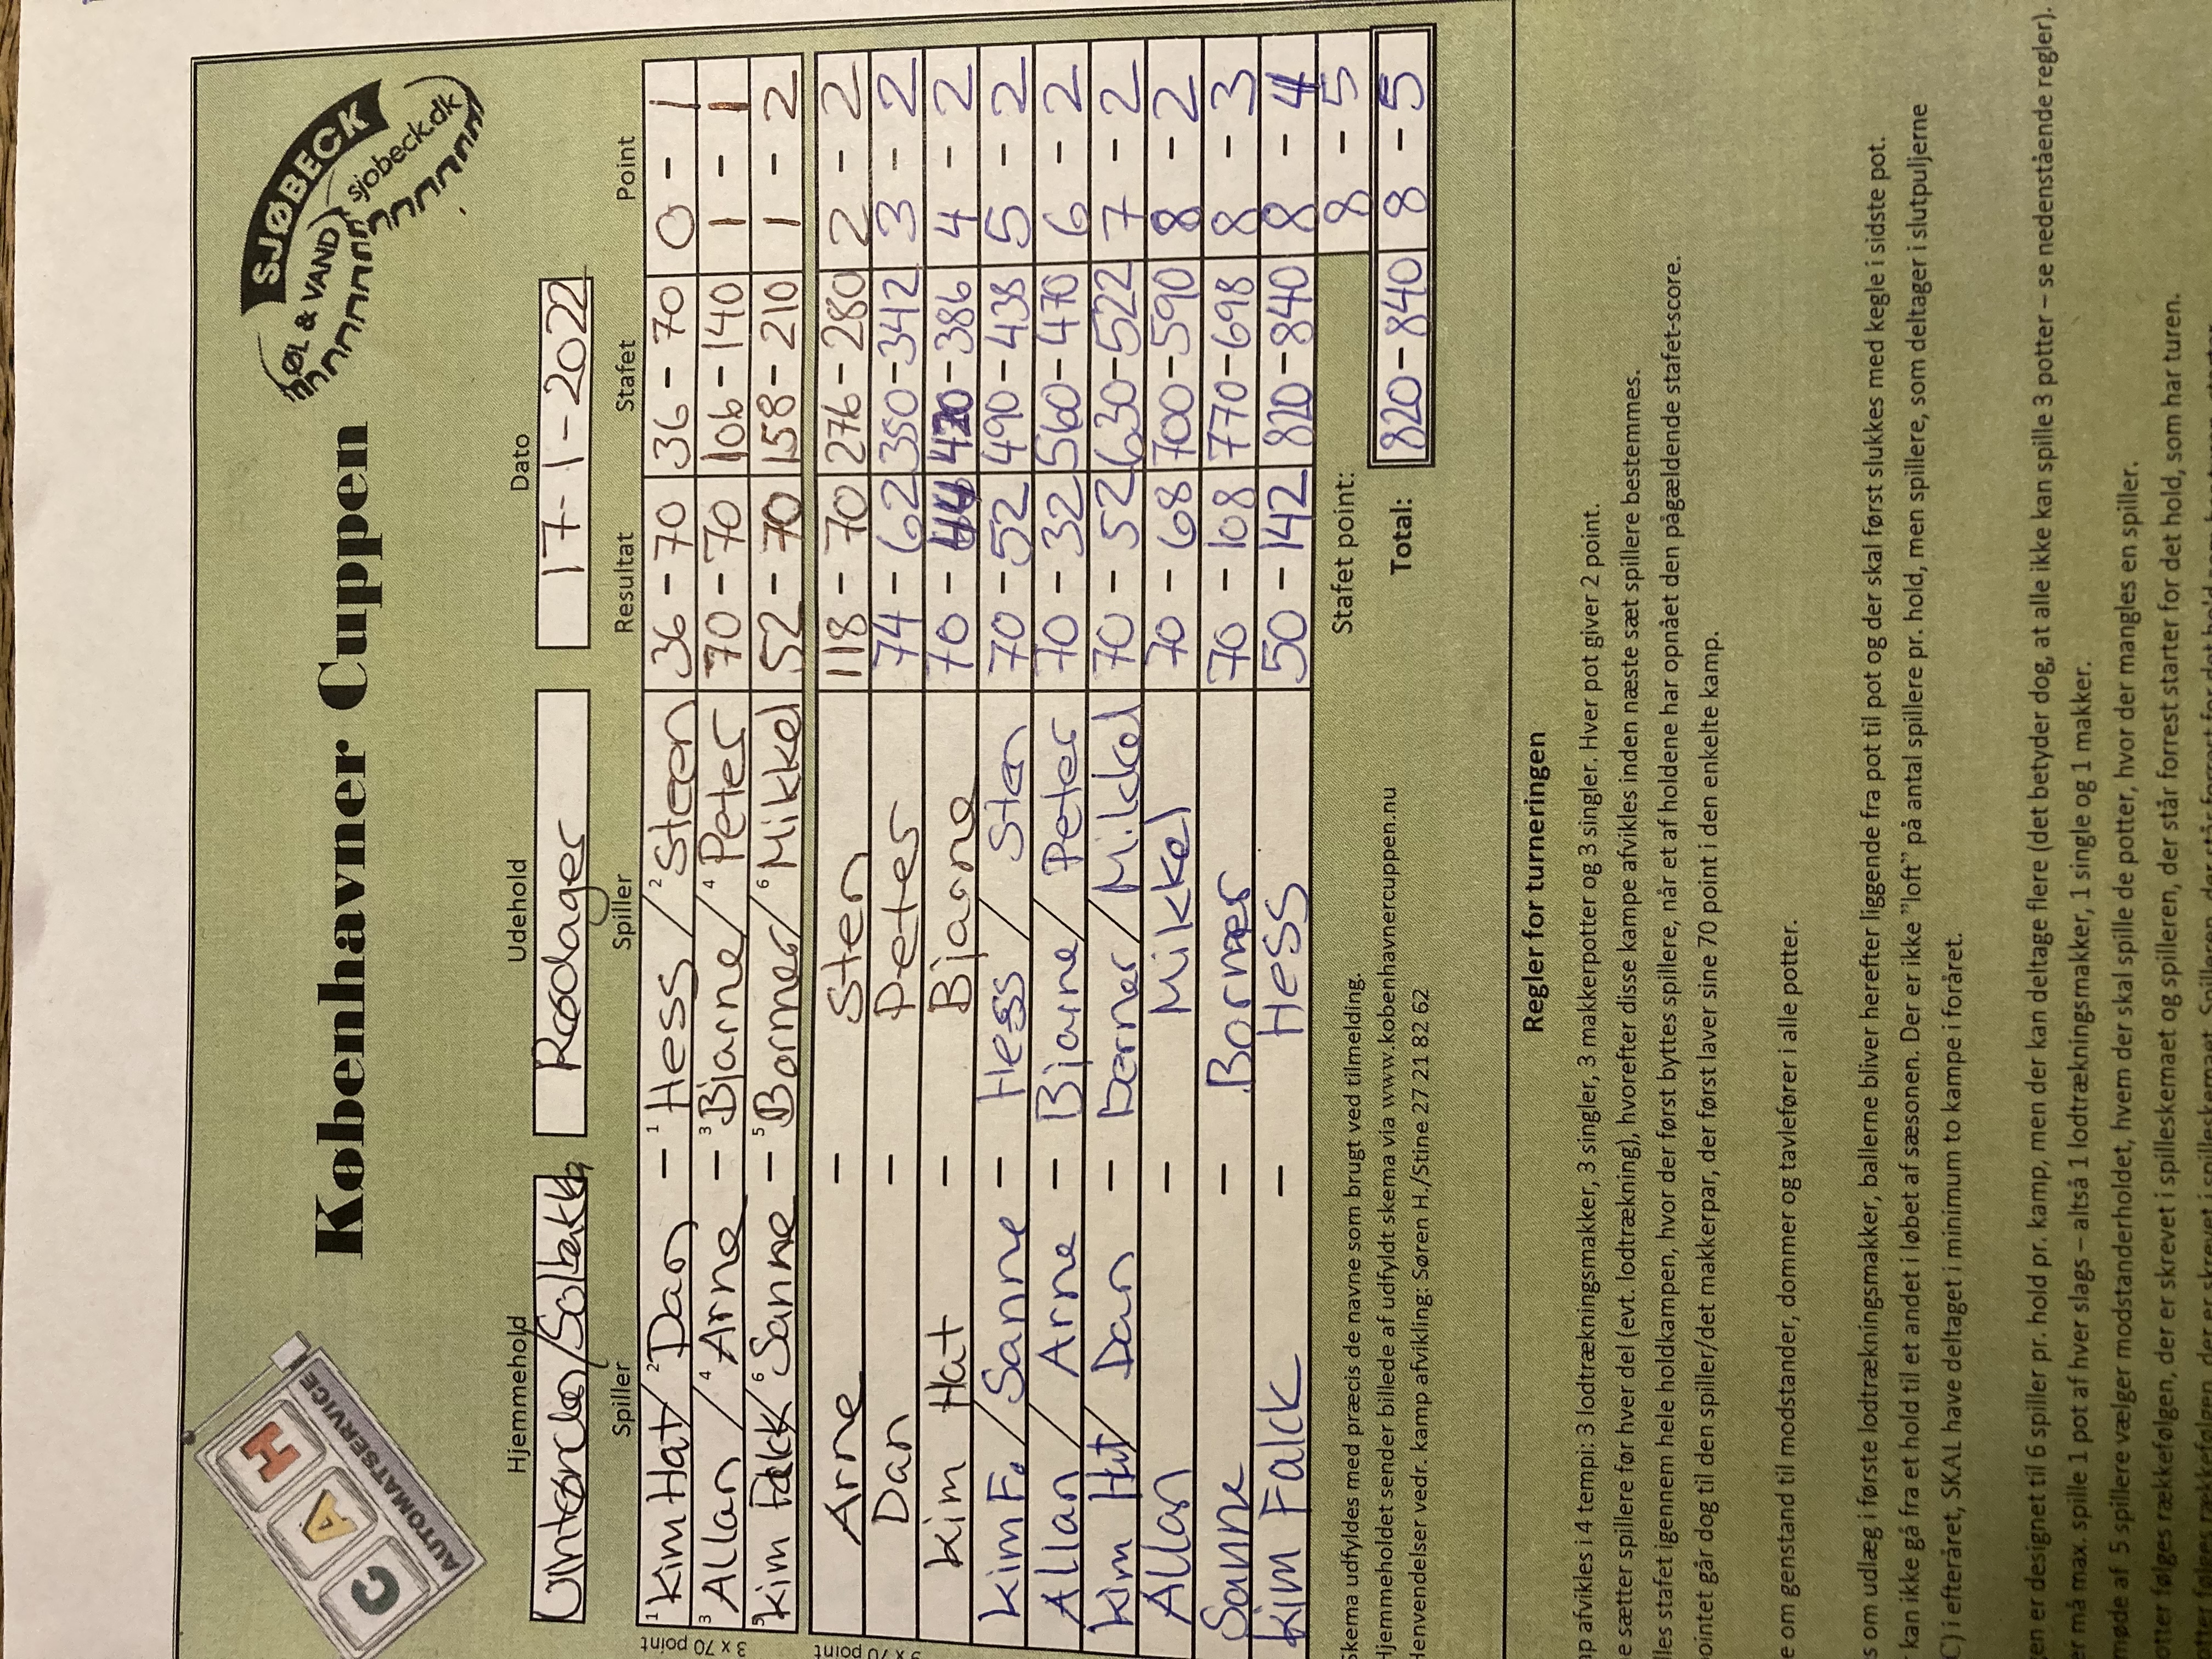 CAH
AUTOMATSERVICE
Københavner Cuppen
SJØBECK
ØL & VAND
sjobeck.dk
Hjemmehold Udehold Dato
Vintercles/Solbakk Rødager 17-1-2022
Spiller Spiller Resultat Stafet Point
3 x 70 point
1 Kim Hat / 2 Dan - 1 Hess / 2 Steen 36 - 70 36 - 70 0 - 1
3 Allan / 4 Arne - 3 Bjarne / 4 Peter 70 - 70 106 - 140 1 - 1
5 Kim Falck / 6 Sanne - 5 Bormer / 6 Mikkel 52 - 70 158 - 210 1 - 2
3 x 70 point
Arne - Sten 118 - 70 276 - 280 2 - 2
Dan - Peter 74 - 62 350 - 342 3 - 2
Kim Hat - Bjarne 70 - 44 420 - 386 4 - 2
Kim F. / Sanne - Hess / Sten 70 - 52 490 - 438 5 - 2
Allan / Arne - Bjarne / Peter 70 - 32 560 - 470 6 - 2
Kim Hat / Dan - Borner / Mikkel 70 - 52 630 - 522 7 - 2
Allan - Mikkel 70 - 68 700 - 590 8 - 2
Sanne - Bormer 70 - 108 770 - 698 8 - 3
Kim Falck - Hess 50 - 142 820 - 840 8 - 4
Stafet point: 8 - 5
Total: 820 - 840 8 - 5
Skema udfyldes med præcis de navne som brugt ved tilmelding.
Hjemmeholdet sender billede af udfyldt skema via www.kobenhavnercuppen.nu
Henvendelser vedr. kamp afvikling: Søren H./Stine 27 21 82 62
Regler for turneringen
afvikles i 4 tempi: 3 lodtrækningsmakker, 3 singler, 3 makkerpotter og 3 singler. Hver pot giver 2 point.
sætter spillere før hver del (evt. lodtrækning), hvorefter disse kampe afvikles inden næste sæt spillere bestemmes.
stafet igennem hele holdkampen, hvor der først byttes spillere, når et af holdene har opnået den pågældende stafet-score.
går dog til den spiller/det makkerpar, der først laver sine 70 point i den enkelte kamp.
om genstand til modstander, dommer og tavlefører i alle potter.
om udlæg i første lodtrækningsmakker, ballerne bliver herefter liggende fra pot til pot og der skal først slukkes med kegle i sidste pot.
kan ikke gå fra et hold til et andet i løbet af sæsonen. Der er ikke ”loft” på antal spillere pr. hold, men spillere, som deltager i slutpuljerne
i efteråret, SKAL have deltaget i minimum to kampe i foråret.
er designet til 6 spiller pr. hold pr. kamp, men der kan deltage flere (det betyder dog, at alle ikke kan spille 3 potter – se nedenstående regler).
må max. spille 1 pot af hver slags – altså 1 lodtrækningsmakker, 1 single og 1 makker.
møde af 5 spillere vælger modstanderholdet, hvem der skal spille de potter, hvor der mangles en spiller.
følges rækkefølgen, der er skrevet i spilleskemaet og spilleren, der står forrest starter for det hold, som har turen.